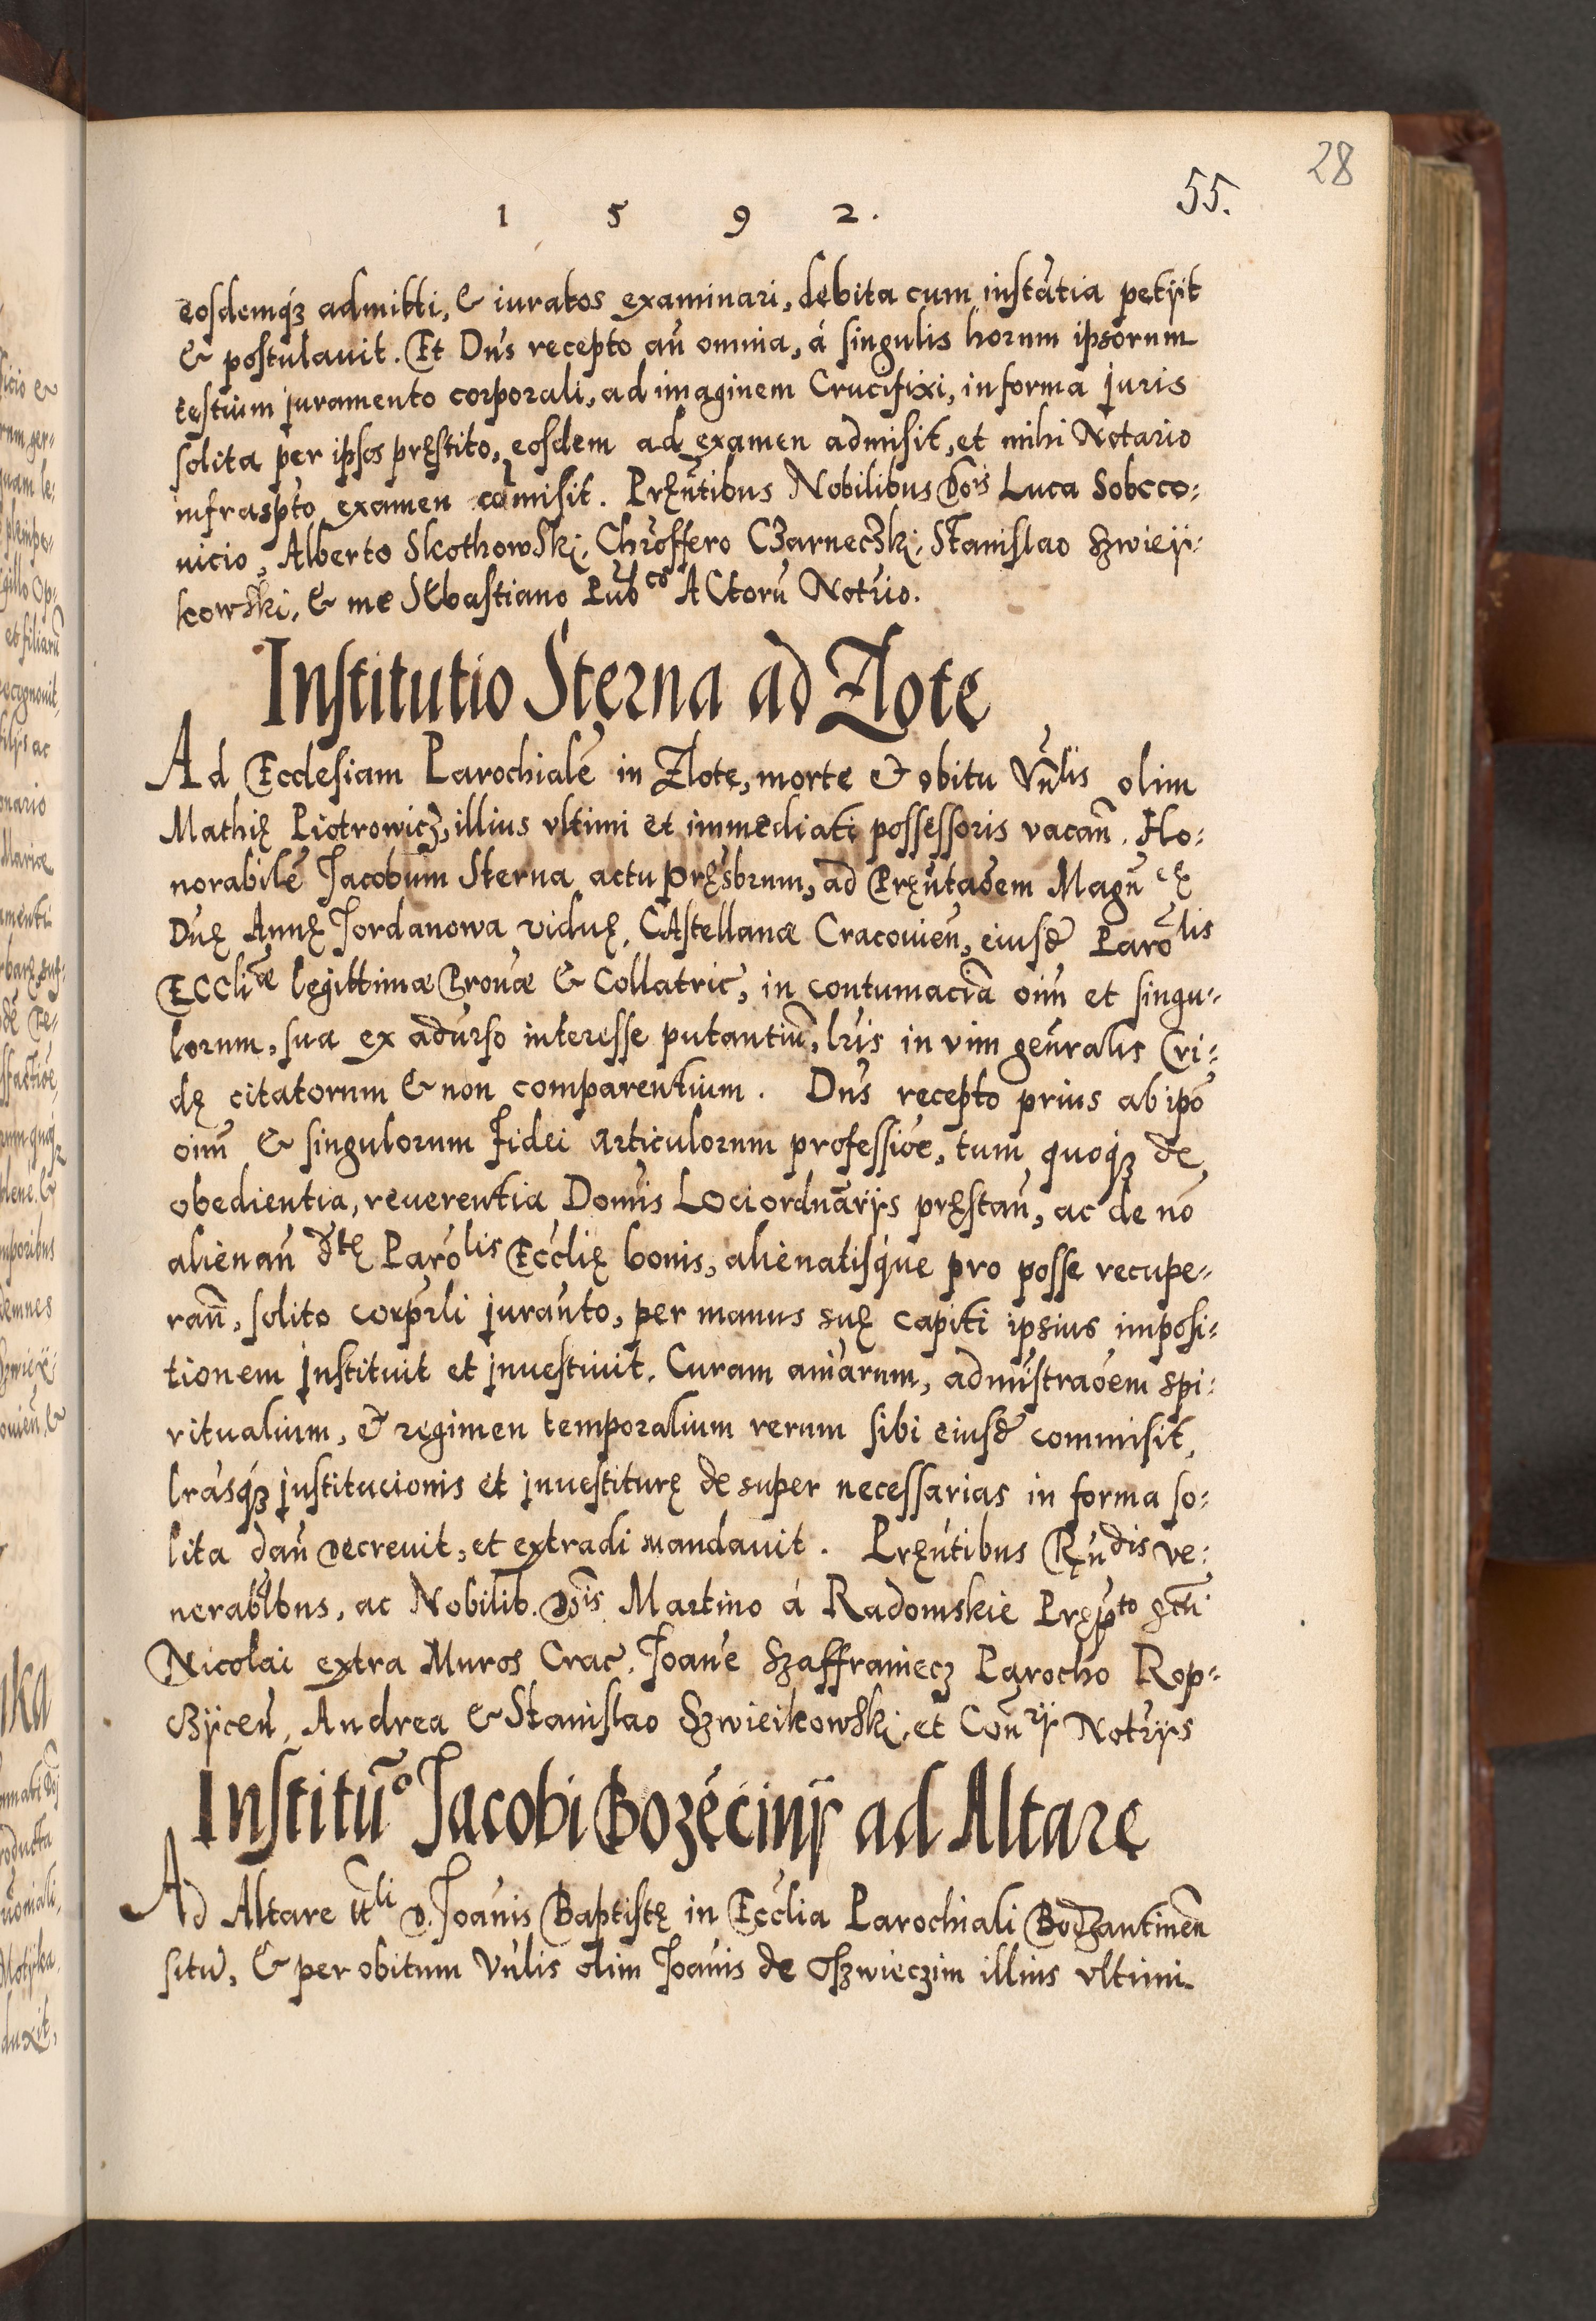 28
55.
1 5 9 2.
eosdemqȝ admitti, & iuratos examinari, debita cum instãtia petÿt
& postulauit. Et Dñs recepto añ omnia, á singulis horum ipsorum
testium juramento corporali, ad imaginem Crucifixi, in forma juris
solita per ipsos pręstito, eosdem ad examen admisit, et mihi Notario
infraspto examen comisit. Pręñtibus Nobilibus Dois Luca Sobcco:
uicio, Alberto Skothowski, Chrõffero Czarneczki, Stanislao Szwieÿ:
kowski, & me Sebastiano Pubco Actorũ Notrio.
Institutio Sterna ad Zlote
Ad Ecclesiam Parochialẽ in Zlote, morte & obitu Vñlis olim
Mathię Piotrowicz, illius vltimi et immediati possessoris vacañ. Ho:
norabilẽ Jacobum Sterna actu pręsbrum, ad Pręñtaõem Magñcę
Dnę Annę Jordanowa viduę, Castellanæ Cracouieñ, eiusd Parõlis
Eccliæ legittimæ Pronæ & Collatric, in contumaciã oim̃ et singu:
lorum, sua ex adurso interesse putantiũ, lris in vim geñralis Cri:
dę citatorum & non comparentium. Dñs recepto prius ab ipõ
oim̃ & singulorum fidei articulorum professiõe, tum quoqȝ de
obedientia, reuerentia Domĩs Loci ordnãrÿs pręstañ, ac de nõ
alienañ dtę Parõlis Ecclię bonis, alienatisque pro posse recupe:
rañ, solito corprli jurañto, per manus suę capiti ipsius imposi:
tionem jnstituit et jnuestiuit. Curam aniarum, admĩstraõem spi:
ritualium, & regimen temporalium rerum sibi eiusd commisit,
lrasqȝ jnstitucionis et jnuestiturę desuper necessarias in forma so:
lita dañ decreuit, et extradi mandauit. Pręñtibus Ręñdis ve:
nerabilbus, ac Nobilib. Dois Martino á Radomskie Pręp̃to Scti
Nicolai extra Muros Crac. Joane Szaffraniecz Parocho Rop:
czÿceñ, Andrea & Stanislao Szwieikowski, et Coñrÿ Notrÿs
Institũo Jacobi Bozęcinÿ ad Altare
Ad Altare ttli D. Joanis Baptistę in Ecclia Parochiali Bodzantineñ
situ, & per obitum Vñlis olim Joanis de Oszwieczim illius vltimi